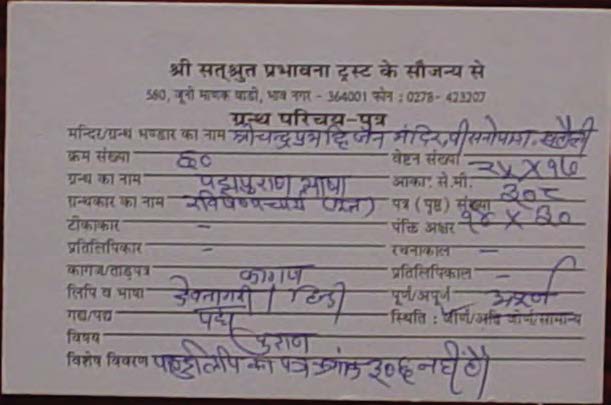 श्री सत्श्रुत प्रभावना ट्रस्ट के सौजन्य से
580, जूनी माणक वाडी, भाव नगर - 364001 फोन : 0278- 423207
ग्रन्थ परिचय-पत्र
मन्दिर/ग्रन्थ भण्डार का नाम श्री चन्द्रप्रभ दि जैन मंदिर,
क्रम संख्या ६० वेष्टन संख्या
ग्रन्थ का नाम पद्मपुराण भाषा आकार से.मी. २५ X १७
ग्रन्थकार का नाम रविषेणाचार्य (मूल) पत्र (पृष्ठ) संख्या ३०८
टीकाकार - पंक्ति अक्षर १४ X ३०
प्रतिलिपिकार - रचनाकाल -
कागज/ताड़पत्र कागज प्रतिलिपिकाल -
लिपि व भाषा देवनागरी / हिन्दी पूर्ण/अपूर्ण अपूर्ण
गद्य/पद्य पद्य स्थिति : जीर्ण/अति जीर्ण/सामान्य
विषय पुराण
विशेष विवरण पाण्डुलिपि का पत्र क्रमांक ३०६ नहीं है।